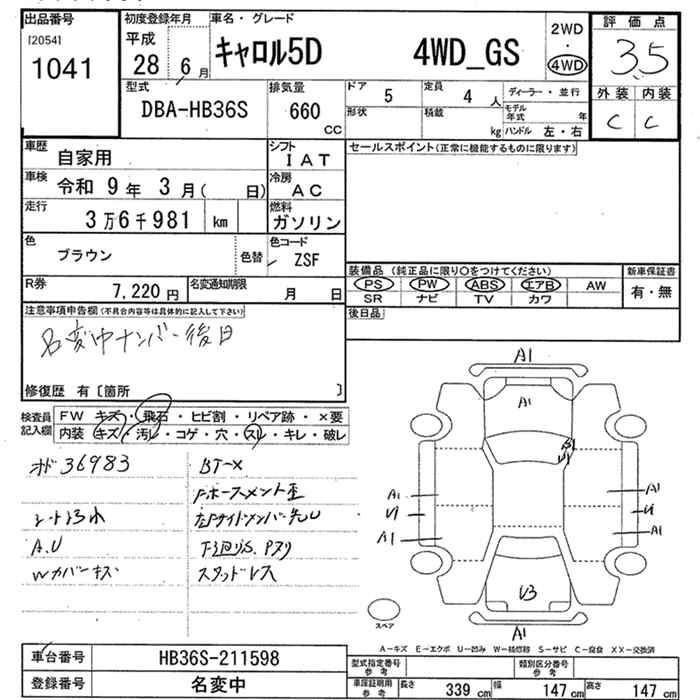 出品番号 初度登録年月 車名・グレード 評価点
[2054] 平成 キャロル5D 4WD_GS 2WD ・ 4WD 3.5
1041 28 6月
型式 排気量 ドア 定員 ディーラー・並行 外装 内装
DBA-HB36S 660 CC 5 4人
形状 積載 kg モデル年式 年 C C
ハンドル 左・右
車歴 自家用 シフト IAT セールスポイント(正常に機能するものに限ります)
車検 令和 9年 3月( 日) 冷房 AC
走行 3万6千981 km 燃料 ガソリン
色 ブラウン 色替 色コード ZSF
装備品 (純正品に限り○をつけてください) 新車保証書
R券 7,220円 名変通知期限 月 日 PS PW ABS エアB AW 有・無
SR ナビ TV カワ
注意事項申告欄(不具合内容等は具体的に記入して下さい) 後日品
名変中ナンバー後日
修復歴 有〔箇所 〕
検査員記入欄 FW キズ・飛石・ヒビ割・リペア跡・×要
内装 キズ・汚レ・コゲ・穴・スレ・キレ・破レ
36983
A.U
Wカバーキズ スタッドレス
A1
A1
A1 A1
A1 A1
A1
スペア
A-キズ E-エクボ U-凹み W-補修跡 S-サビ C-腐食 XX-交換済
車台番号 HB36S-211598 型式指定番号 参考 類別区分番号 参考
登録番号 名変中 車庫証明用 参考 長さ 339cm 幅 147cm 高さ 147cm